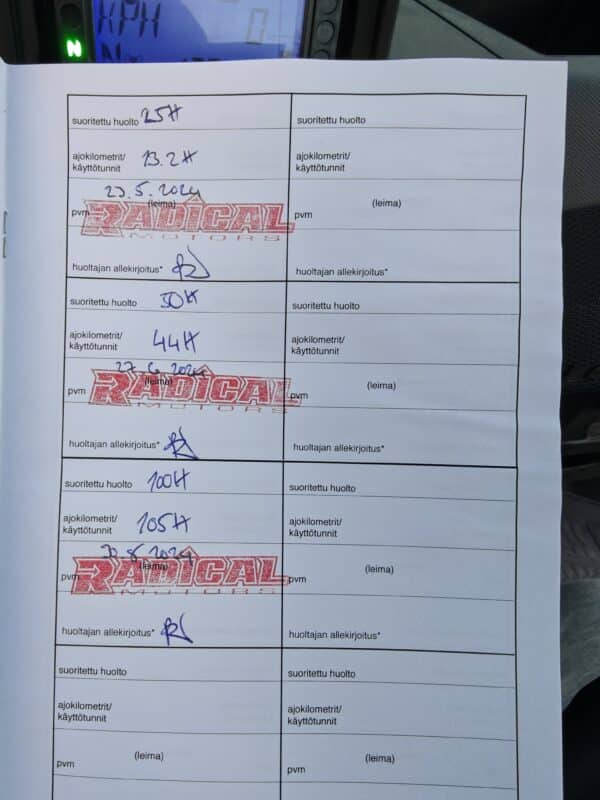 KPH 0
N
suoritettu huolto 25H
ajokilometrit/
käyttötunnit 13.2H
23.5.2024
(leima)
pvm
RADICAL
MOTORS
huoltajan allekirjoitus*
suoritettu huolto 50H
ajokilometrit/
käyttötunnit 44H
27.6.2024
(leima)
pvm
RADICAL
MOTORS
huoltajan allekirjoitus*
suoritettu huolto 100H
ajokilometrit/
käyttötunnit 105H
30.8.2024
(leima)
pvm
RADICAL
MOTORS
huoltajan allekirjoitus*
suoritettu huolto
ajokilometrit/
käyttötunnit
(leima)
pvm
suoritettu huolto
ajokilometrit/
käyttötunnit
(leima)
pvm
huoltajan allekirjoitus*
suoritettu huolto
ajokilometrit/
käyttötunnit
(leima)
pvm
huoltajan allekirjoitus*
suoritettu huolto
ajokilometrit/
käyttötunnit
(leima)
pvm
huoltajan allekirjoitus*
suoritettu huolto
ajokilometrit/
käyttötunnit
(leima)
pvm